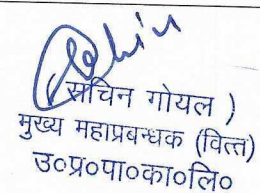 (सचिन गोयल )
मुख्य महाप्रबन्धक (वित्त)
उ०प्र०पा०का०लि०